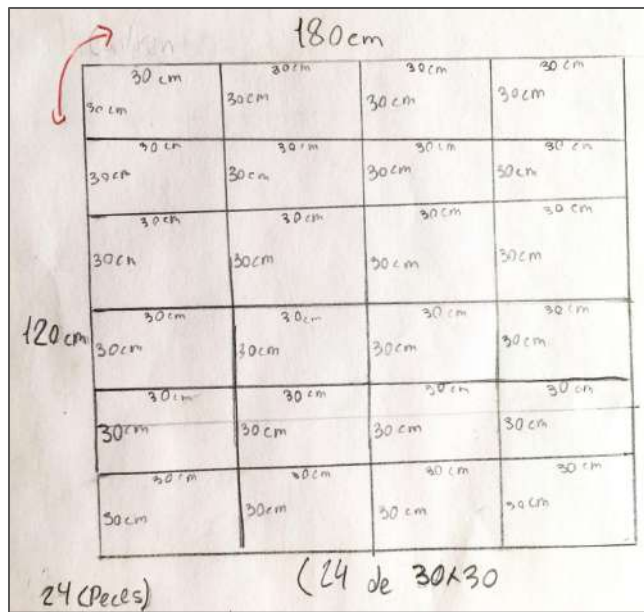 180cm
30 cm 30cm 30cm 30 cm
30cm 30cm 30cm 30cm
30cm 30cm 30cm 30 cm
30cm 30cm 30cm 30cm
30cm 30cm 30cm 30cm
30cm 30cm 30cm 30cm
120cm
30cm 30cm 30cm 30cm
30cm 30cm 30cm 30cm
30cm 30cm 30cm 30cm
30cm 30cm 30cm 30cm
30cm 30cm 30cm 30cm
30cm 30cm 30cm 30cm
24 (Peces)
(24 de 30x30